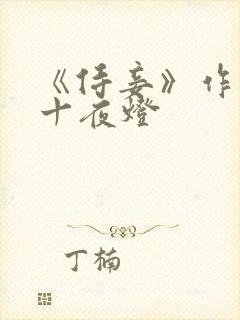 《侍妾》作
十夜燈
丁楠